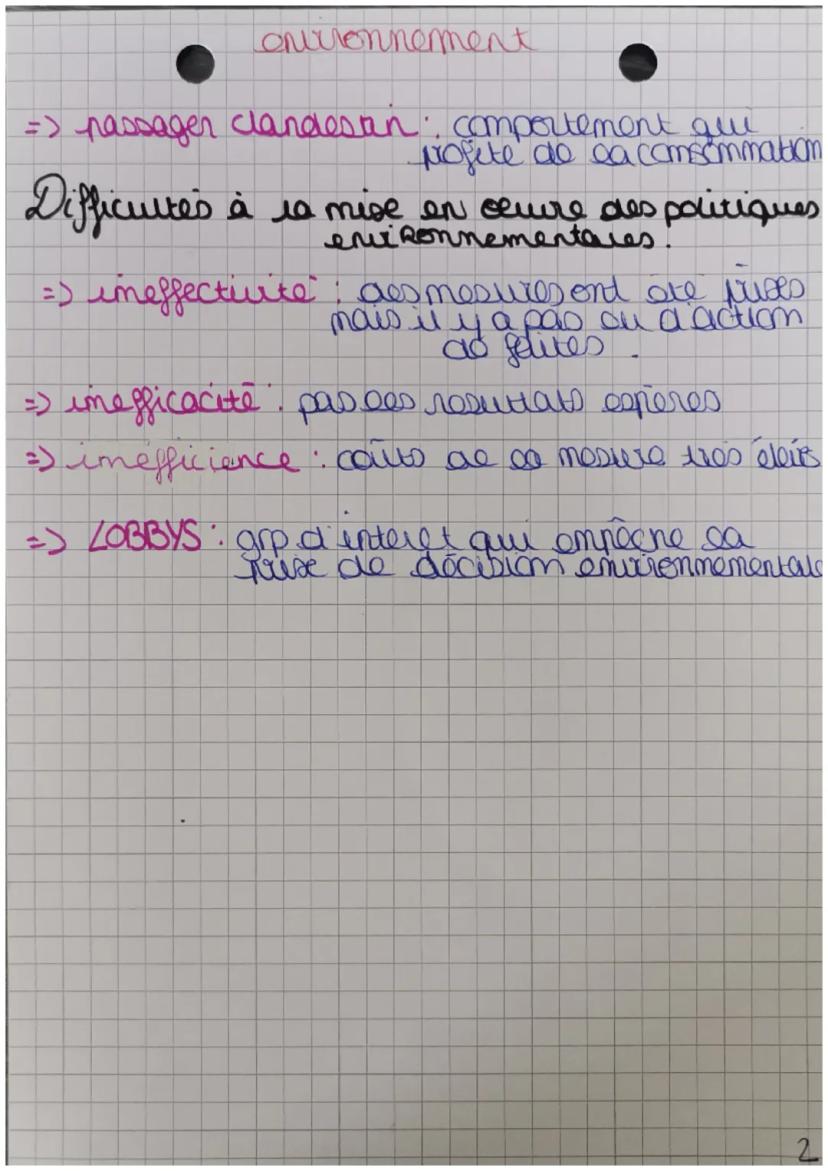 environnement
=> passager clandestin : comportement qui
profite de la consommation
Difficultés à la mise en oeuvre des politiques
environnementales.
=> ineffectivité : des mesures ont été prises
mais il y a pas eu d'action
de faites.
=> inefficacité : pas les résultats espérés
=> inefficience : coûts de la mesure très élevés
=> LOBBYS : grp d'interet qui empêche la
prise de décision environnementale
2